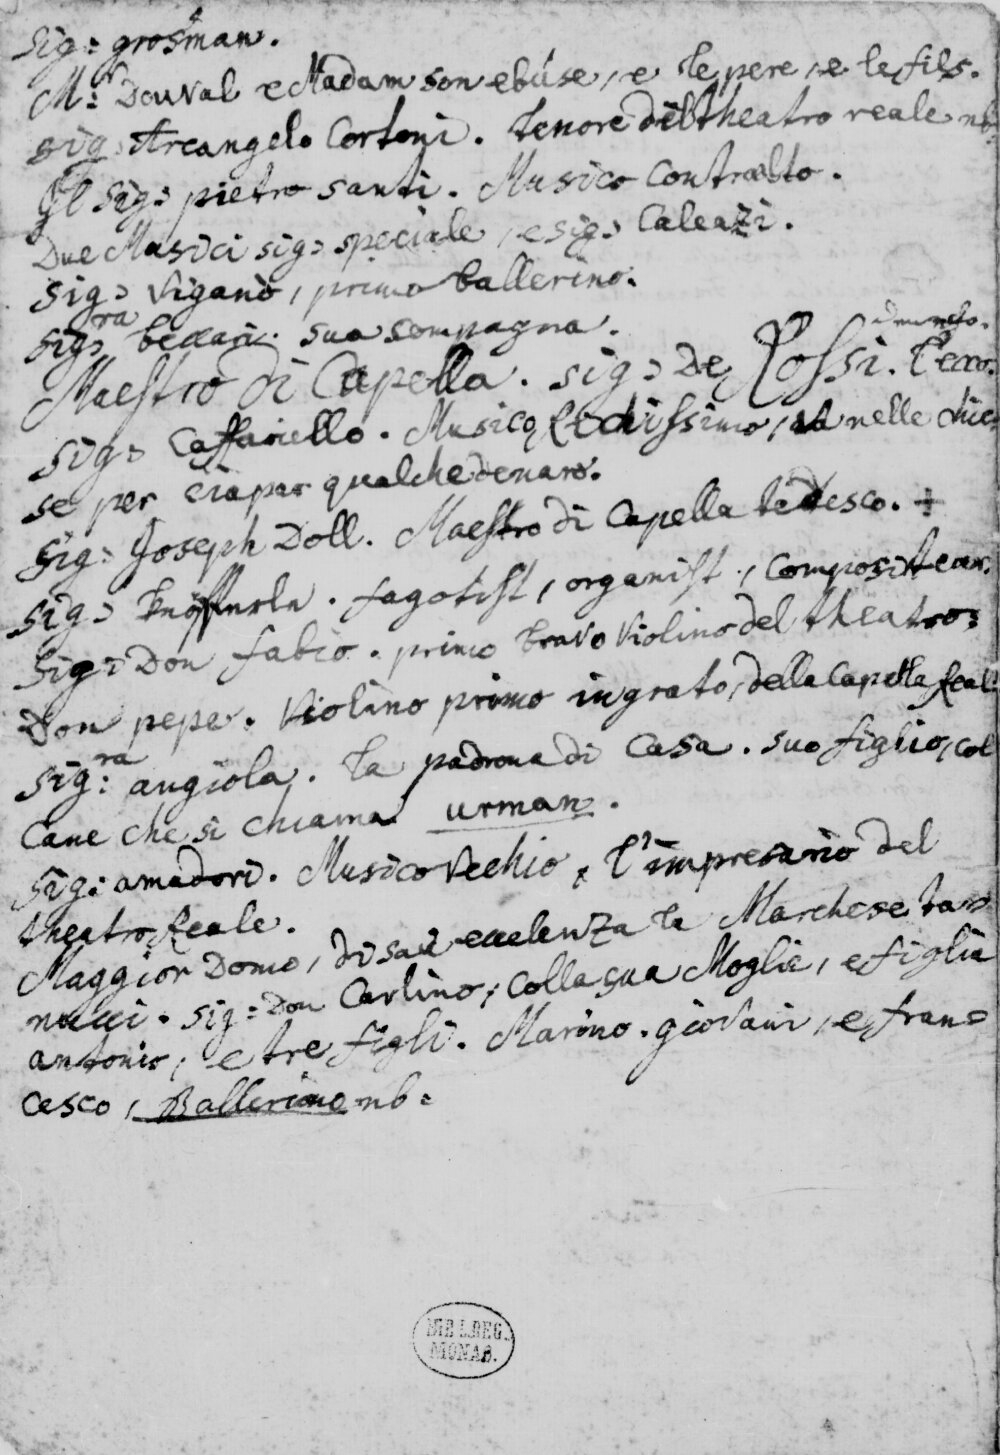 Sig: grosman.
M:r Douval e Madam son ebúse, e le pere, e le fils.
sig: Arcangelo Cortoni. tenore del theatro reale nb:
Il Sig: pietro santi. Musico Contralto.
Due Musici sig: speciale, e sig: Caleazi.
Sig: Viganò, primo ballerino.
Sig:ra beccari. sua compagna.
Maestro di Capella. sig: De Rossi.
Sig: Caffariello. Musico Richissimo, va nelle chie=
se per ciapar qualche denaro.
Sig: Joseph Doll. Maestro di Capella tedesco. +
sig: fagotist, organist, compositeur.
Sig: Don fabio. primo bravo Violino del theatro:
Don pepe. Violino primo ingrato, della Capella Real:
Sig:ra angiola. la padrona di Casa. suo figlio, col
Cane che si chiama urman.
Sig: amadori. Musico Vechio, l'impresario del
theatro Reale.
Maggior Domo, di sua eccelenza la Marchese ta=
nucci. sig: Don Carlino; colla sua Moglie, e figlio
antonio, e tre figli. Marino. giovani, e fran=
cesco, Ballerino nb:
BIBL.REG.
MONAC.